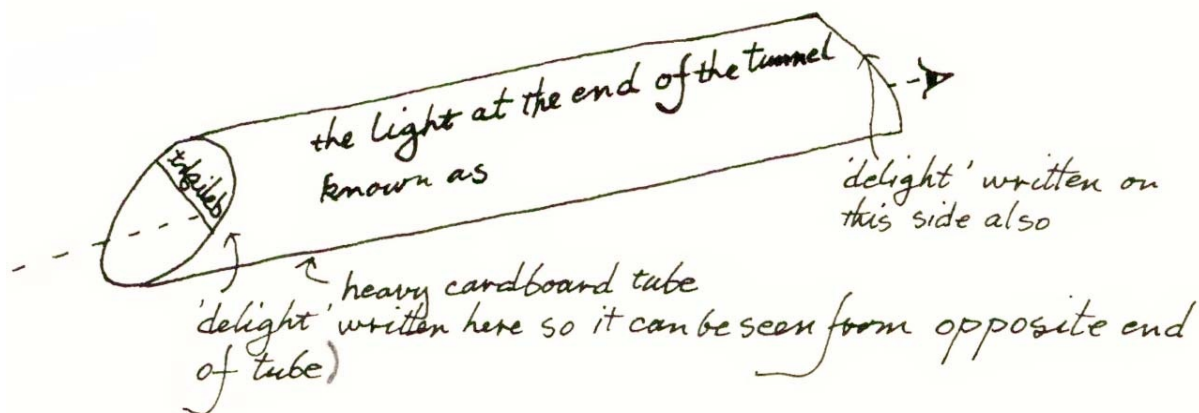 the light at the end of the tunnel
known as
delight
'delight' written on
this side also
heavy cardboard tube
'delight' written here so it can be seen from opposite end
of tube)